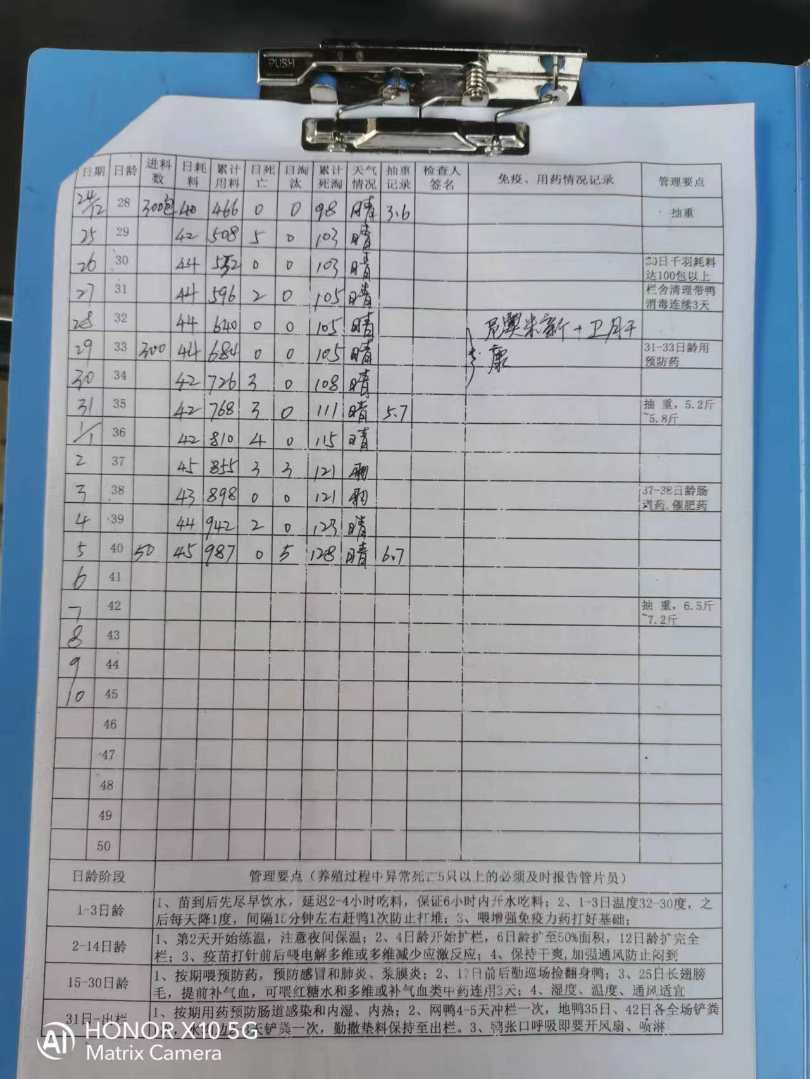 PUSH
日期 日龄 进料数 日耗料 累计用料 日死亡 日淘汰 累计死淘 天气情况 抽重记录 检查人签名 免疫、用药情况记录 管理要点
24/12 28 300包 40 466 0 0 98 晴 3.6 抽重
25 29 42 508 5 0 103 晴
26 30 44 552 0 0 103 晴 30日千羽耗料达100包以上
27 31 44 596 2 0 105 晴 栏舍清理带鸭消毒连续3天
28 32 44 640 0 0 105 晴
29 33 300 44 684 0 0 105 晴 康 31-33日龄用预防药
30 34 42 726 3 0 108 晴
31 35 42 768 3 0 111 晴 5.7 抽重，5.2斤~5.8斤
1/1 36 42 810 4 0 115 晴
2 37 45 855 3 3 121
3 38 43 898 0 0 121 37-38日龄肠道药、催肥药
4 39 44 942 2 0 123 晴
5 40 50 45 987 0 5 128 晴 6.7
6 41
7 42 抽重，6.5斤~7.2斤
8 43
9 44
10 45
46
47
48
49
50
日龄阶段 管理要点（养殖过程中异常死亡5只以上的必须及时报告管片员）
1-3日龄 1、苗到后先尽早饮水，延迟2-4小时吃料，保证6小时内开水吃料；2、1-3日温度32-30度，之
后每天降1度，间隔15分钟左右赶鸭1次防止打堆；3、喂增强免疫力药打好基础；
2-14日龄 1、第2天开始练温，注意夜间保温；2、4日龄开始扩栏，6日龄扩至50%面积，12日龄扩完全
栏；3、疫苗打针前后喂电解多维或多维减少应激反应；4、保持干爽，加强通风防止闷到
15-30日龄 1、按期喂预防药，预防感冒和肺炎、浆膜炎；2、17日前后勤巡场捡翻身鸭；3、25日长翅膀
毛，提前补气血，可喂红糖水和多维或补气血类中药连用3天；4、湿度、温度、通风适宜
31日-出栏 1、按期用药预防肠道感染和内湿、内热；2、网鸭4-5天冲栏一次，地鸭35日、42日各全场铲粪
铲粪一次，勤撒垫料保持至出栏。3、鸭张口呼吸即要开风扇、喷淋
AI HONOR X10 5G
Matrix Camera